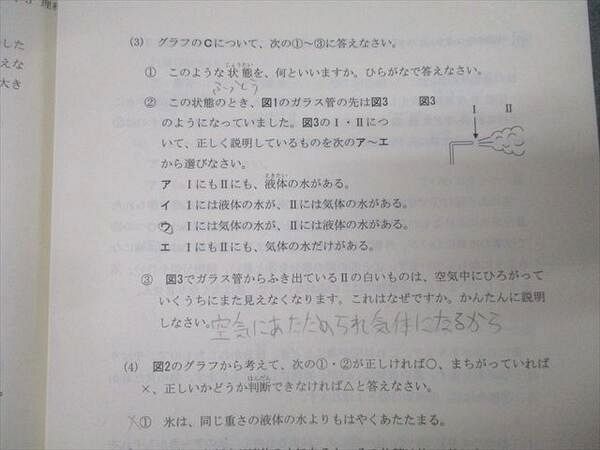 理科
した
えな
大き
(3) グラフのCについて、次の①〜③に答えなさい。
① このような状態を、何といいますか。ひらがなで答えなさい。
ふっとう
② この状態のとき、図1のガラス管の先は図3
のようになっていました。図3のⅠ・Ⅱにつ
いて、正しく説明しているものを次のア〜エ
から選びなさい。
図3
Ⅰ Ⅱ
ア ⅠにもⅡにも、液体の水がある。
イ Ⅰには液体の水が、Ⅱには気体の水がある。
ウ Ⅰには気体の水が、Ⅱには液体の水がある。
エ ⅠにもⅡにも、気体の水だけがある。
③ 図3でガラス管からふき出ているⅡの白いものは、空気中にひろがって
いくうちにまた見えなくなります。これはなぜですか。かんたんに説明
しなさい。空気にあたためられ気体になるから
(4) 図2のグラフから考えて、次の①・②が正しければ○、まちがっていれば
×、正しいかどうか判断できなければ△と答えなさい。
×① 氷は、同じ重さの液体の水よりもはやくあたたまる。